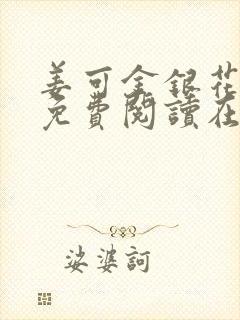 姜可金銀花
免費閱讀在
娑婆訶